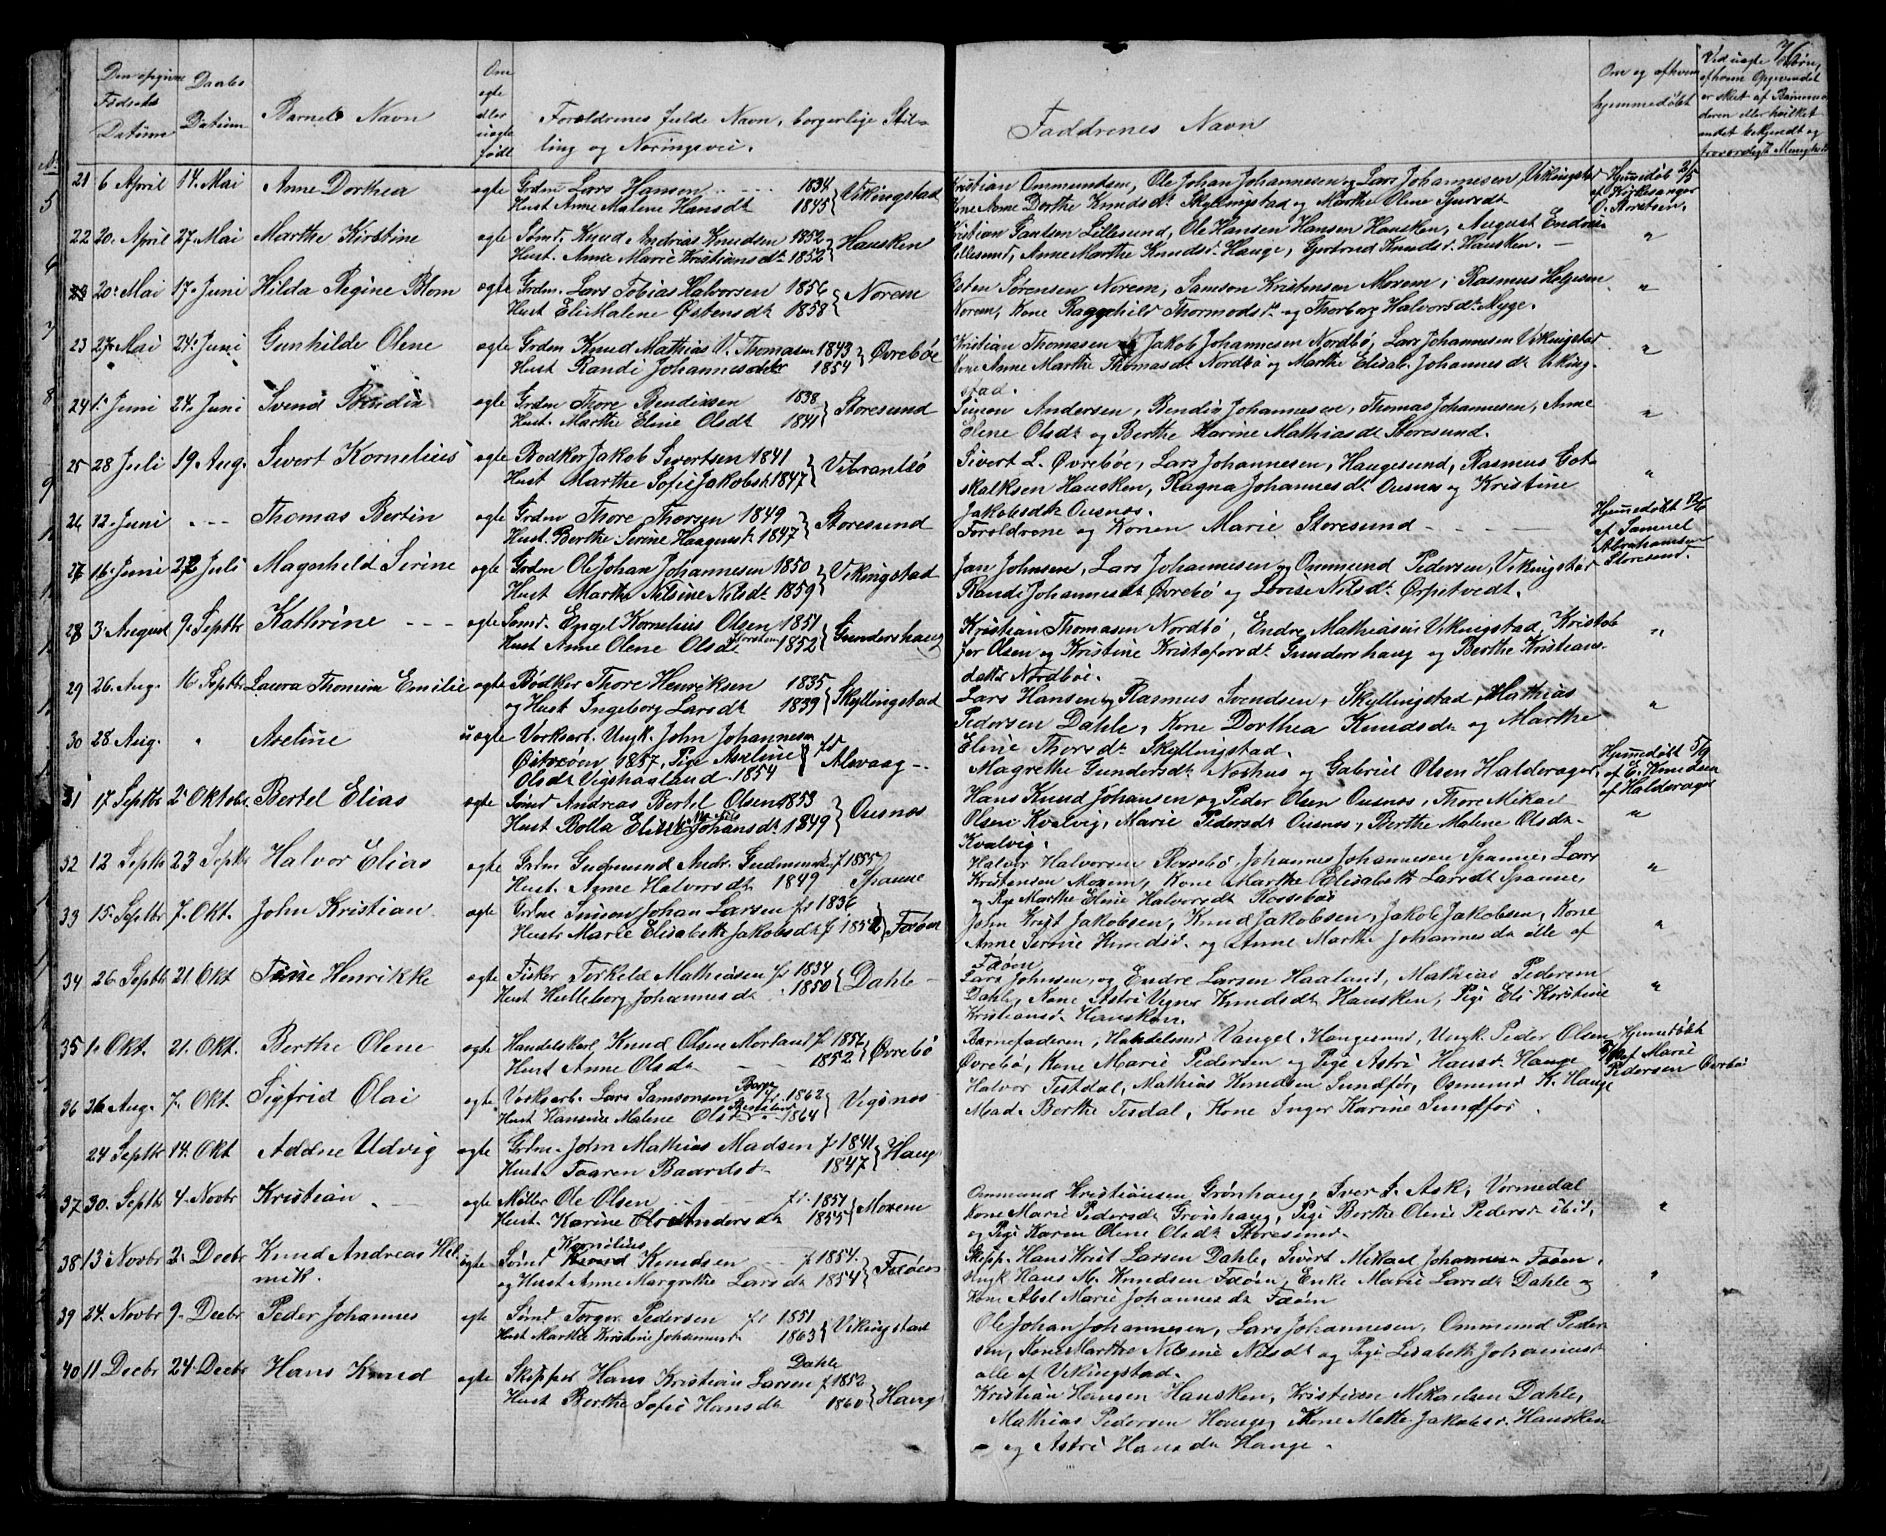 76
Den opgivne Fødsels Datum
Daabs Datum
Barnets Navn
Om ægte eller uægte født
Forældrenes fulde Navn, borgerlige Stilling og Næringsvei.
Faddrenes Navn
Om og af hvem hjemmedøbt
21 6 April 14. Mai Anne Dorthea ægte Grdm Lars Hansen 1834 Vikingstad
Hust Anne Malene Hansdt 1845
Kristian Ommundsen, Ole Johan Johannesen og Lars Johannesen, Vikingstad
Kone Anne Dorthe Knudsdt Skyllingstad og Marthe Olene Sjursdt
Hjemdøb 2/5
af Kirkesanger
O. Storesen.
22 20. April 27. Mai Marthe Kirstine ægte Sømd. Knud Andrias Knudsen 1852 Hausken
Hust. Anne Marie Kristiansdt 1852
Kristian Paulsen Lillesund, Ole Hansen Hansen Hausken, August Endres
Lillesund, Anne Marthe Knudsdt Hauge, Gjertrud Knudsdt Hausken. "
20. Mai 17. Juni Hilda Regine Blom ægte Grdm. Lars Tobias Halvorsen 1856 Norem
Hust Eli Malene Østensdt 1858
Østen Sørensen Norem, Samson Kristensen Moxem, Rasmus Helgesen
Norem, Kone Raggehild Thormodsdt og Thorborg Halvorsdt Myge. "
23 27. Mai 24. Juni Gunhilde Olene ægte Grdm Knud Mathias V. Thomasen 1843 Øvrebøe
Hust Randi Johannesdtr 1854
Kristian Thomasen og Jakob Johannesen Nordbø, Lars Johannesen Vikingstad
Kone Anne Marthe Thomasdt Nordbø og Marthe Elisab. Johannesdt Viking-
stad. "
24 1. Juni 24. Juni Svend Bendix ægte Grdm Thore Bendixsen 1838 Storesund
Hust. Marthe Eline Olsdt 1841
Simon Andersen, Bendix Johannesen, Thomas Johannesen, Anne
Elene Olsdt og Berthe Karine Mathiasdt Storesund. "
25 28 Juli 19. Aug. Sivert Kornelius ægte Bødker Jakob Sivertsen 1841 Vibrandsø
Hust Marthe Sofie Jakobsdt 1847
Sivert L. Øvrebøe, Lars Johannesen, Haugesund, Rasmus Got-
skalksen Hausken, Ragna Johannesdt Ousnes og Kristine
Jakobsdt Ousnes. "
26 12. Juni Thomas Bertin ægte Grdm Thore Thorsen 1849 Storesund
Hust. Berthe Serine Haagensdt 1847
Forældrene og Konen Marie Storesund
Hjemmedøbt 12/6
af Samuel
Abrahamsen
Storesund.
27 16. Juni 22 Juli Magnhild Serine ægte Grdm Ole Johan Johannesen 1850 Vikingstad
Hust Marthe Nilsine Nilsdt 1859
Jan Johnsen, Lars Johannesen og Ommund Pedersen, Vikingstad
Randi Johannesdt Øvrebø og Lovise Nilsdt Ørpetvedt.
28 3. August 9. Septbr Kathrine ægte Sømd. Engel Kornelius Olsen 1851 Gundershaug
Hust Anne Olene Olsdt 1852
Kristian Thomasen Nordbø, Endre Mathiasen Vikingstad, Kristof-
fer Olsen og Kristine Kristoffersdt Gundershaug og Berthe Kristians-
datter Nordbøe. "
29 26. Aug. 16 Septbr Laura Thomina Emilie ægte Bødker Thore Henriksen 1835 Skyllingstad
og Hust Ingeborg Larsdt 1839
Lars Hansen, Rasmus Svendsen, Skyllingstad, Mathias
Pedersen Dahle, Kone Dorthea Knudsdt og Marthe
Eline Thorsdt Skyllingstad. "
30 28 Aug. " Axeline uægte Værksarb. Ungk. John Johannesen
Østreøen 1857, Pige Axeline Alvaag
Olsdt Vigshaaland 1854
Magrethe Gundersdt Norhus og Gabriel Olsen Halderager,
Hjemmedøbt 5/9
af E. Knudsen
af Halderager
31 17 Septbr 2. Oktobr Bertel Elias ægte Sømd Andreas Bertel Olsen 1853 Ousnes
Hust Bolla Elise Johansdt 1849
Hans Knud Johansen og Peder Olsen Ousnes, Thore Mikael
Olsen Kvalvig, Marie Pedersdt Ousnes, Berthe Malene Olsdt
Kvalvig. "
32 12 Septbr 23 Septbr Halvor Elias ægte Grdm Gudmund Andr. Gudmunds. f. 1855 Spanne
Hust. Anne Halvorsdt 1849
Halvor Halvorsen Rossebø, Johannes Johannesen Spanne, Lars
Kristensen Moxem, Kone Marthe Elisabeth Larsdt Spanne,
og Pige Marthe Eline Halvorsdt Rossebø "
33 15. Septbr 7. Okt. John Kristian ægte Grdm Simon Johan Larsen f. 1836 Fæøen
Hustr Marie Elisabeth Jakobsdt f 1852
John Krist Jakobsen, Knud Jakobsen, Jakob Jakobsen, Kone
Anne Serine Knudsdt og Anne Marthe Johannesdt alle af
Fæøen "
34 26. Septbr 21. Okt Tine Henrikke ægte Fisker Torkeld Mathiasen f. 1834 Dahle
Hust Helleborg Johannesdt 1850
Lars Johnsen, og Endre Larsen Haaland, Mathias Pedersen
Dahle, Kone Astri Vigne Knudsdt Hausken, Pige Eli Kirstine
Kristiansdt Hausken. "
35 1. Okt. 21. Okt. Berthe Olene ægte Handelskarl Knud Olsen Morland f. 1856 Øvrebø
Hust Anne Olsdt 1852
Barnefaderen, Handelsmd Vangel, Haugesund, Ungk. Peder Olsen
Øvrebø, Kone Marie Pedersen og Pige Astri Hansdt Hauge
Hjemmedøbt
af Marie
Pedersen Øvrebø
36 26 Aug. 7. Okt. Sigfrid Olai ægte Værksarb. Lars Samsonsen f. 1862 Vigsnes
Hust Hansine Malene Olsdt 1864
Halvor Tisdal, Mathias Knudsen Sundfør, Osmund K. Hauge
Mad. Berthe Tisdal, Kone Inger Karine Sundfør.
24 Septbr 14. Okt Addne Udvig ægte Grdm. John Mathias Madsen f. 1841 Haug
Hust Taaren Baardsdt 1847
37 30. Septbr 4. Novbr Kristian ægte Møller Ole Olsen f. 1851 Moxem
Hust. Karine Andersdt 1855
Ommund Kristiansen Grønhaug, Iver I. Ask, Vormedal
Kone Marie Pedersdt Grønhaug, Pige Berthe Olene Pedersdt ibid,
og Pige Karen Olene Olsdt Storesund "
38 13 Novbr 2. Decbr Knud Andreas Hel-
mik. ægte Sømd Kornelius Knudsen f 1854. Fæøen
og Hust Anne Margrethe Larsdt 1854
Skipp. Hans Krist Larsen Dahle, Sivert Mikael Johannesn Fæøen,
Ungk Hans M. Knudsen Fæøen, Enke Marie Larsdt Dahle og
Kone Abel Marie Johannesdt Fæøen "
39 24. Novbr 9. Decbr Peder Johannes ægte Sømd Torger Pedersen f. 1851 Vikingstad
Hust Marthe Kristine Johannesdt 1863
Ole Johan Johannesen, Lars Johannesen, Ommund Peder-
sen, Kone Marthe Nilsine Nilsdt og Pige Lisabeth Johannesdt
alle af Vikingstad.
40 11 Decbr 24. Decbr Hans Knud ægte Skipper Hans Kristian Larsen Dahle f 1852 Haug
Hust Berthe Sofie Hansdt 1860
Kristian Hansen Hausken, Kristian Mikaelsen Dahle,
Mathias Pedersen Hauge, Kone Mette Jakobsdt Hausken
og Astri Hansdt Hauge.